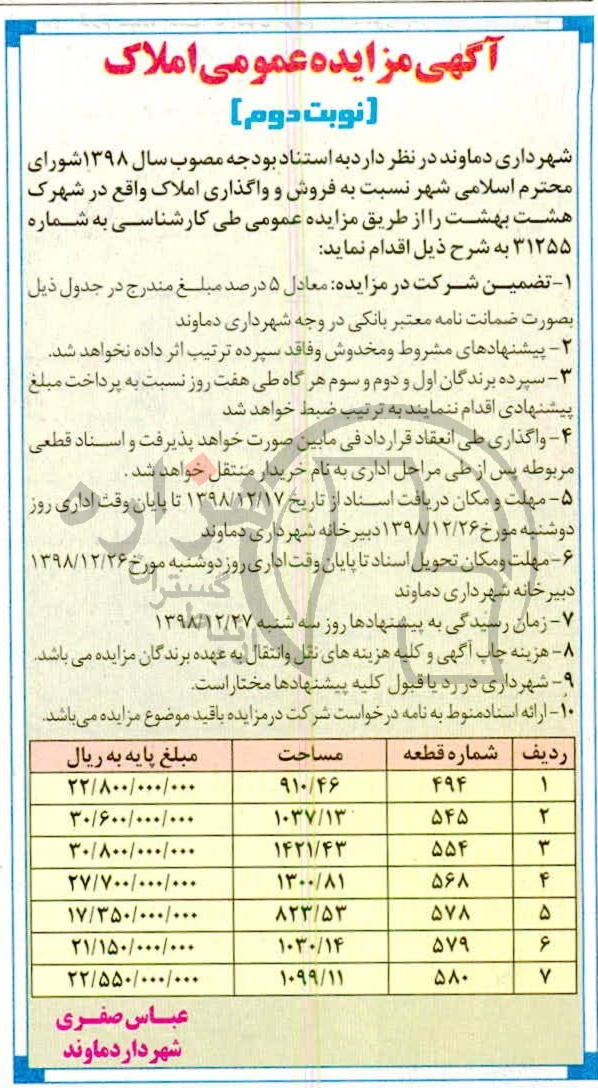 آگهی مزایده عمومی املاک
(نوبت دوم)
شهرداری دماوند در نظر دارد به استناد بودجه مصوب سال ۱۳۹۸ شورای
محترم اسلامی شهر نسبت به فروش و واگذاری املاک واقع در شهرک
هشت بهشت را از طریق مزایده عمومی طی کارشناسی به شماره
۳۱۲۵۵ به شرح ذیل اقدام نماید:
۱- تضمین شرکت در مزایده: معادل ۵ درصد مبلغ مندرج در جدول ذیل
بصورت ضمانت نامه معتبر بانکی در وجه شهرداری دماوند
۲- پیشنهادهای مشروط ومخدوش وفاقد سپرده ترتیب اثر داده نخواهد شد.
۳- سپرده برندگان اول و دوم و سوم هر گاه طی هفت روز نسبت به پرداخت مبلغ
پیشنهادی اقدام ننمایند به ترتیب ضبط خواهد شد
۴- واگذاری طی انعقاد قرارداد فی مابین صورت خواهد پذیرفت و اسناد قطعی
مربوطه پس از طی مراحل اداری به نام خریدار منتقل خواهد شد.
۵- مهلت و مکان دریافت اسناد از تاریخ ۱۳۹۸/۱۲/۱۷ تا پایان وقت اداری روز
دوشنبه مورخ ۱۳۹۸/۱۲/۲۶ دبیرخانه شهرداری دماوند
۶- مهلت ومکان تحویل اسناد تا پایان وقت اداری روز دوشنبه مورخ ۱۳۹۸/۱۲/۲۶
دبیرخانه شهرداری دماوند
۷- زمان رسیدگی به پیشنهادها روز سه شنبه ۱۳۹۸/۱۲/۲۷
۸- هزینه چاپ آگهی و کلیه هزینه های نقل وانتقال به عهده برندگان مزایده می باشد.
۹- شهرداری در رد یا قبول کلیه پیشنهادها مختار است.
۱۰- ارائه اسناد منوط به نامه درخواست شرکت در مزایده باقید موضوع مزایده می‌باشد.
ردیف شماره قطعه مساحت مبلغ پایه به ریال
۱ ۴۹۴ ۹۱۰/۴۶ ۲۲/۸۰۰/۰۰۰/۰۰۰
۲ ۵۴۵ ۱۰۳۷/۱۳ ۳۰/۶۰۰/۰۰۰/۰۰۰
۳ ۵۵۴ ۱۴۲۱/۴۳ ۳۰/۸۰۰/۰۰۰/۰۰۰
۴ ۵۶۸ ۱۳۰۰/۸۱ ۲۷/۷۰۰/۰۰۰/۰۰۰
۵ ۵۷۸ ۸۲۳/۵۳ ۱۷/۳۵۰/۰۰۰/۰۰۰
۶ ۵۷۹ ۱۰۳۰/۱۴ ۲۱/۱۵۰/۰۰۰/۰۰۰
۷ ۵۸۰ ۱۰۹۹/۱۱ ۲۲/۵۵۰/۰۰۰/۰۰۰
عباس صفری
شهردار دماوند